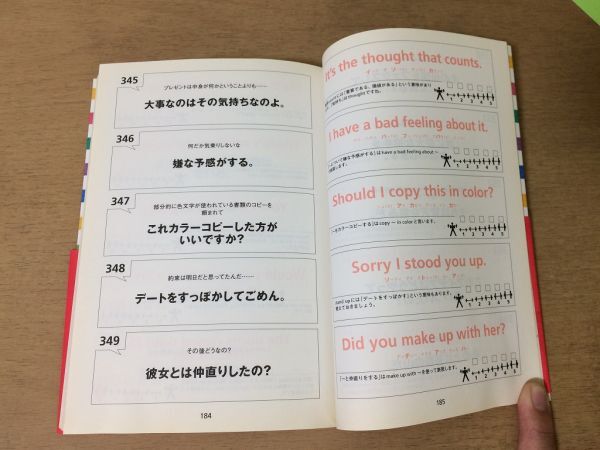 345
プレゼントは中身が何かということよりも……
大事なのはその気持ちなのよ。
346
何だか気乗りしないな
嫌な予感がする。
347
部分的に色文字が使われている書類のコピーを
頼まれて
これカラーコピーした方が
いいですか?
348
約束は明日だと思ってたんだ……
デートをすっぽかしてごめん。
349
その後どうなの?
彼女とは仲直りしたの?
184
It's the thought that counts.
1 2 3 4 5
I have a bad feeling about it.
1 2 3 4 5
Should I copy this in color?
1 2 3 4 5
Sorry I stood you up.
stand up には「デートをすっぽかす」という意味もあります。
覚えておきましょう。
1 2 3 4 5
Did you make up with her?
「〜と仲直りをする」は make up with 〜を使って表現します。
1 2 3 4 5
185